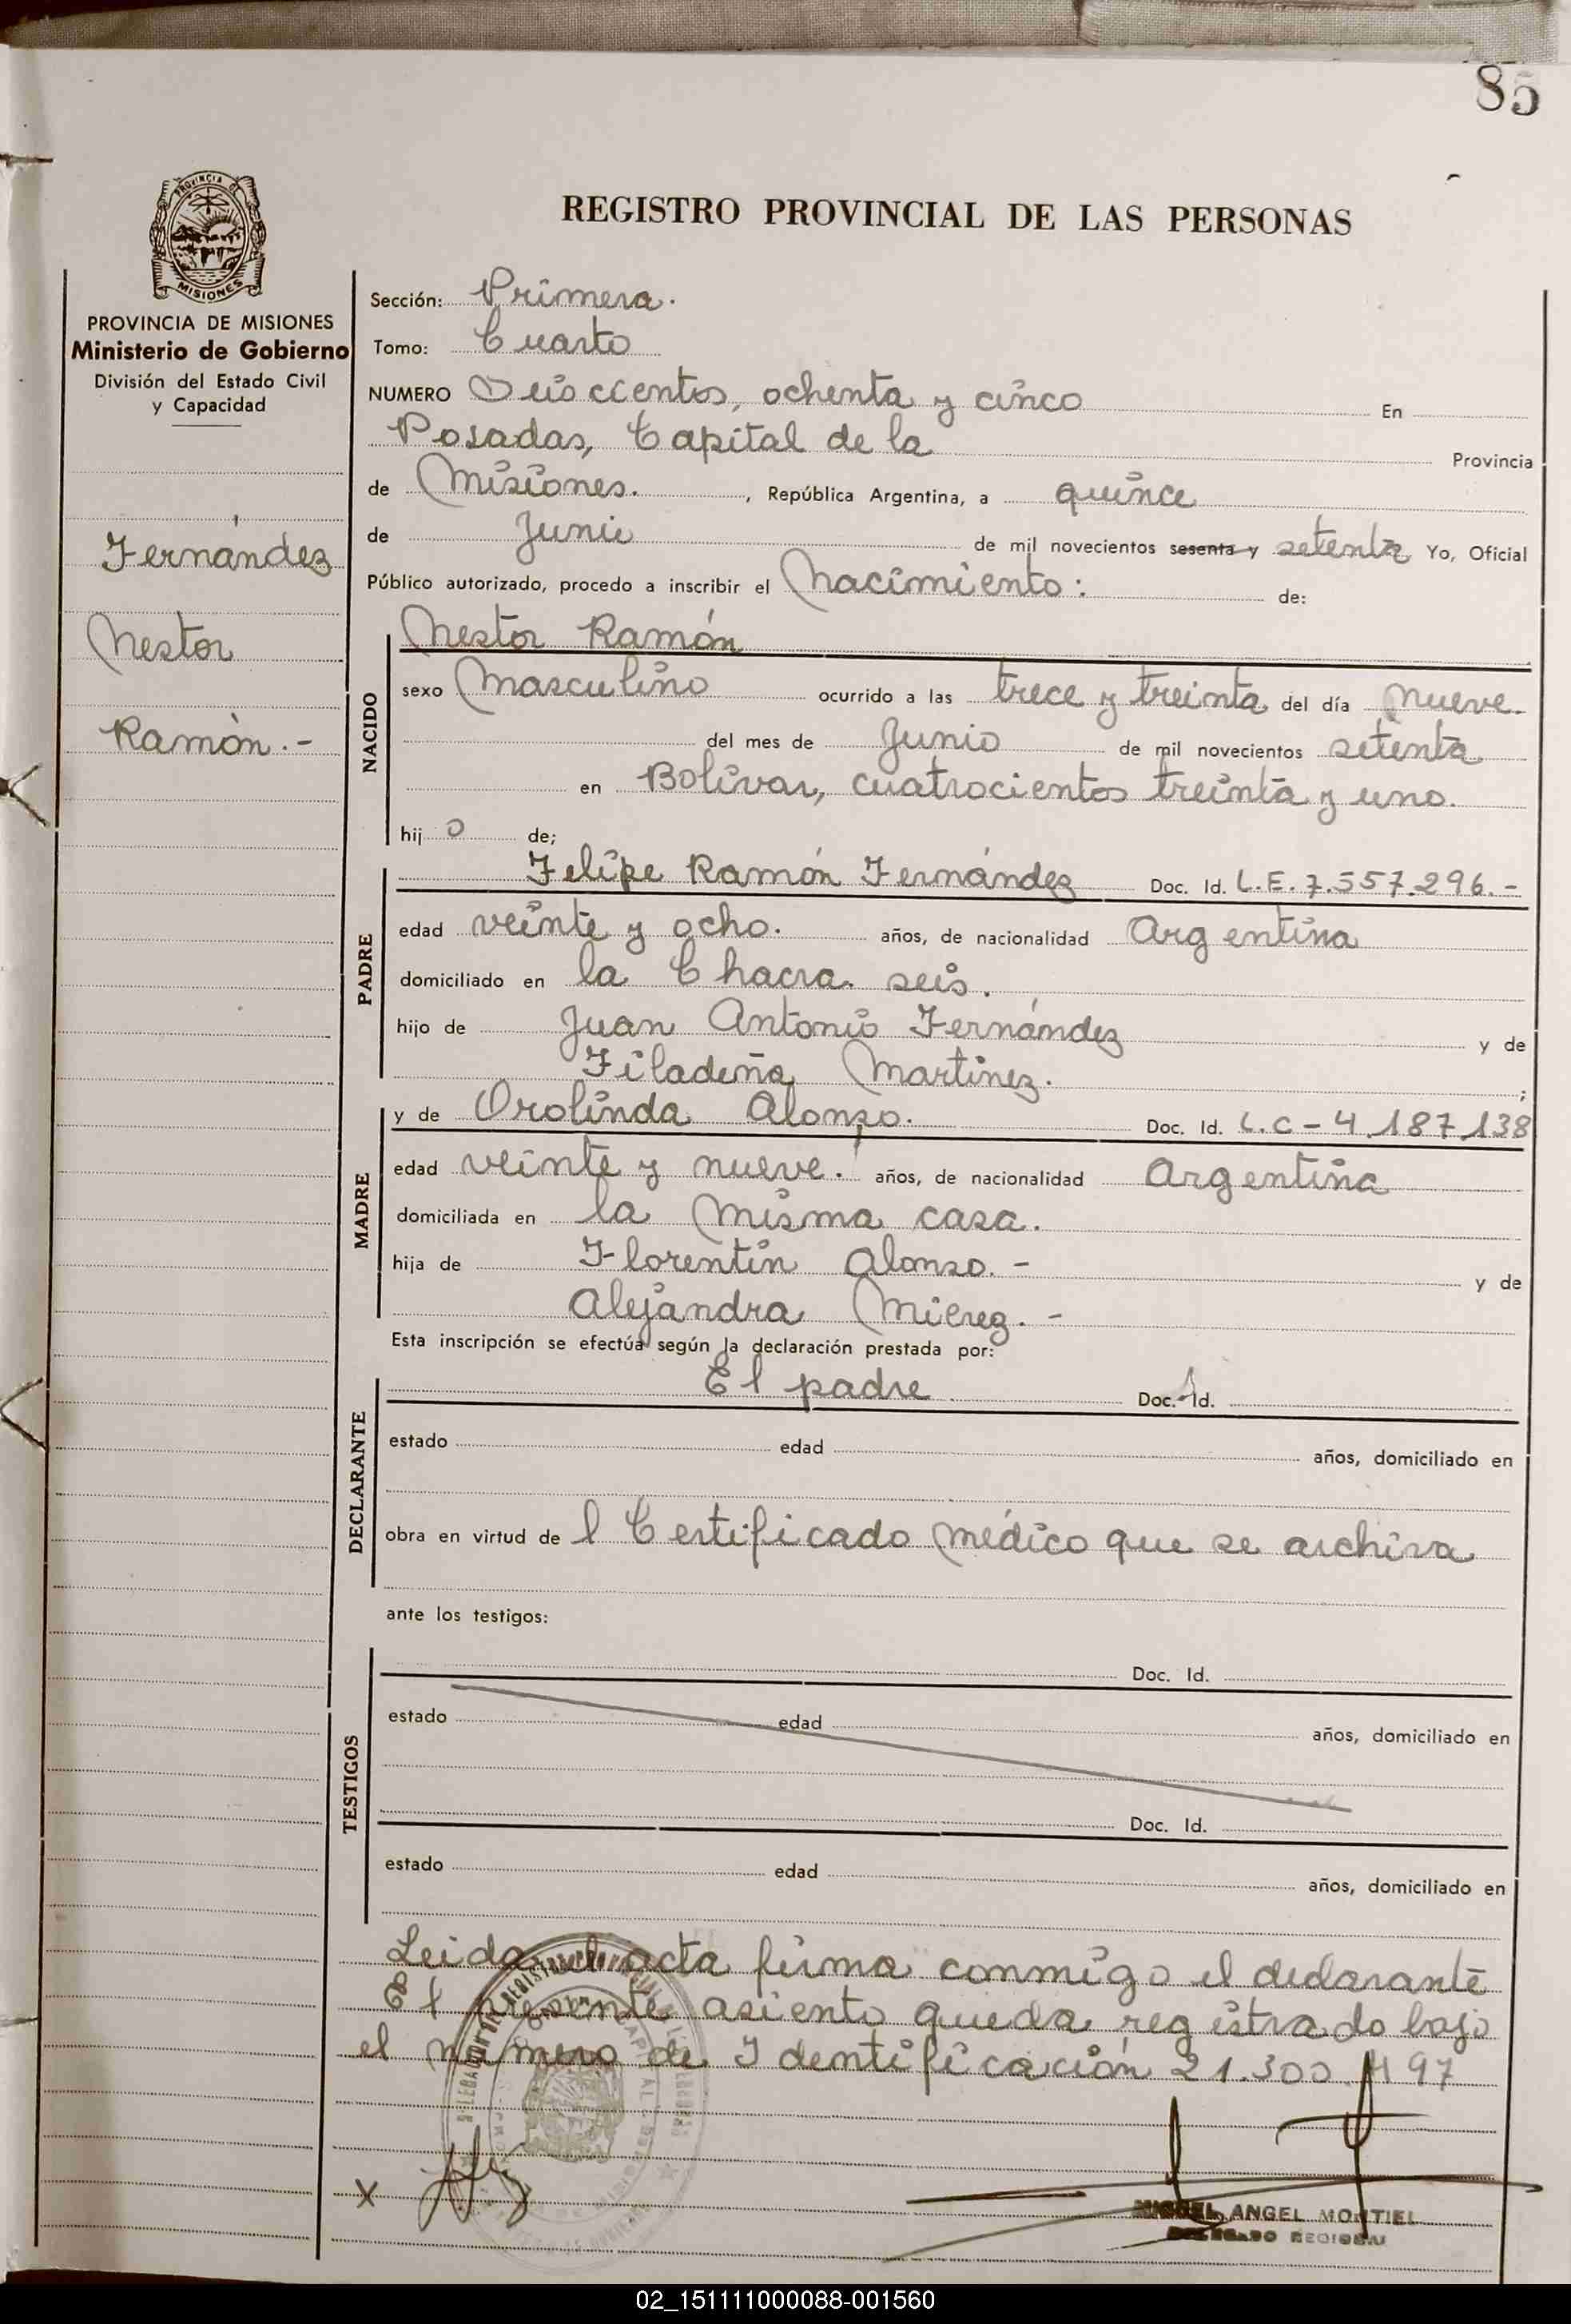 85
REGISTRO PROVINCIAL DE LAS PERSONAS
PROVINCIA DE MISIONES
Ministerio de Gobierno
División del Estado Civil
y Capacidad
Fernández
Nestor
Ramón.-
Sección: Primera.
Tomo: Cuarto
NUMERO Seiscientos, ochenta y cinco En
Posadas, Capital de la Provincia
de Misiones. , República Argentina, a quince
de Junio de mil novecientos sesenta y setenta Yo, Oficial
Público autorizado, procedo a inscribir el Nacimiento: de:
NACIDO
Nestor Ramón
sexo Masculino ocurrido a las trece y treinta del día Nueve.
del mes de Junio de mil novecientos setenta
en Bolívar, cuatrocientos treinta y uno.
hij o de;
PADRE
Felipe Ramón Fernández Doc. Id. L.E. 7.557.296.-
edad veinte y ocho. años, de nacionalidad Argentina
domiciliado en la Chacra seis.
hijo de Juan Antonio Fernández y de
Martinez. ;
MADRE
y de Orolinda Alonso. Doc. Id. L.C - 4.187.138
edad veinte y nueve. años, de nacionalidad Argentina
domiciliada en la misma casa.
hija de Florentín Alonso. - y de
Alejandra -
Esta inscripción se efectúa según la declaración prestada por:
DECLARANTE
El padre Doc. Id.
estado edad años, domiciliado en
obra en virtud de l Certificado médico que se archiva
ante los testigos:
TESTIGOS
Doc. Id.
estado edad años, domiciliado en
Doc. Id.
estado edad años, domiciliado en
Leida el acta firma conmigo el declarante
El presente asiento queda registrado bajo
el número de Identificación 21.300.497
X
MIGUEL ANGEL MONTIEL
DELEGADO REGIONAL
02_151111000088-001560